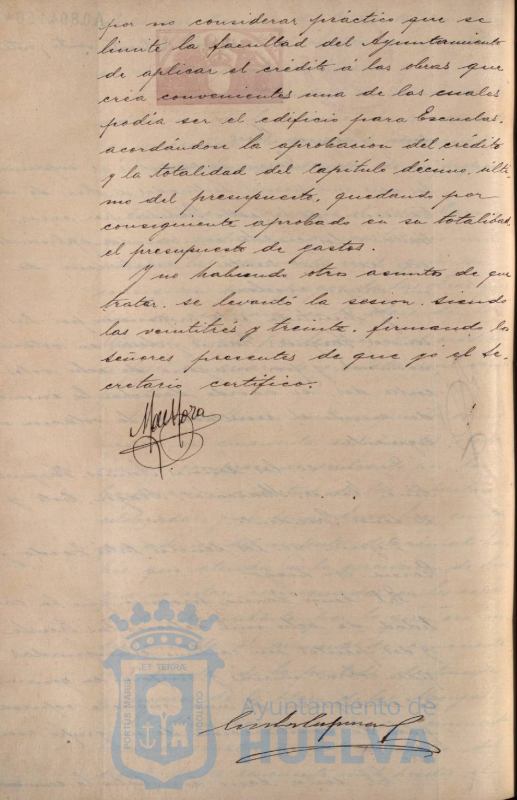 por no considerar práctico que se
limite la facultad del Ayuntamiento
de aplicar el crédito á las obras que
crea convenientes una de las cuales
podia ser el edificio para Escuelas,
acordándose la aprobacion del crédito
y la totalidad del Capítulo décimo, últi-
mo del presupuesto, quedando por
consiguiente aprobado en su totalidad
el presupuesto de gastos.
Y no habiendo otros asuntos de que
tratar, se levantó la sesion, siendo
las veintitrés y treinta, firmando los
señores presentes de que yo el Se-
cretario certifico.
ET TERRÆ
PORTUS MARIS
CUSTODIA
Ayuntamiento de
HUELVA